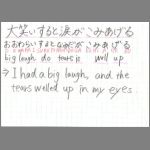 大笑いすると涙がこみあげる
おおわらいするとなみだがこみあげる
big laugh do tears is well up
→ I had a big laugh, and the
tears welled up in my eyes.